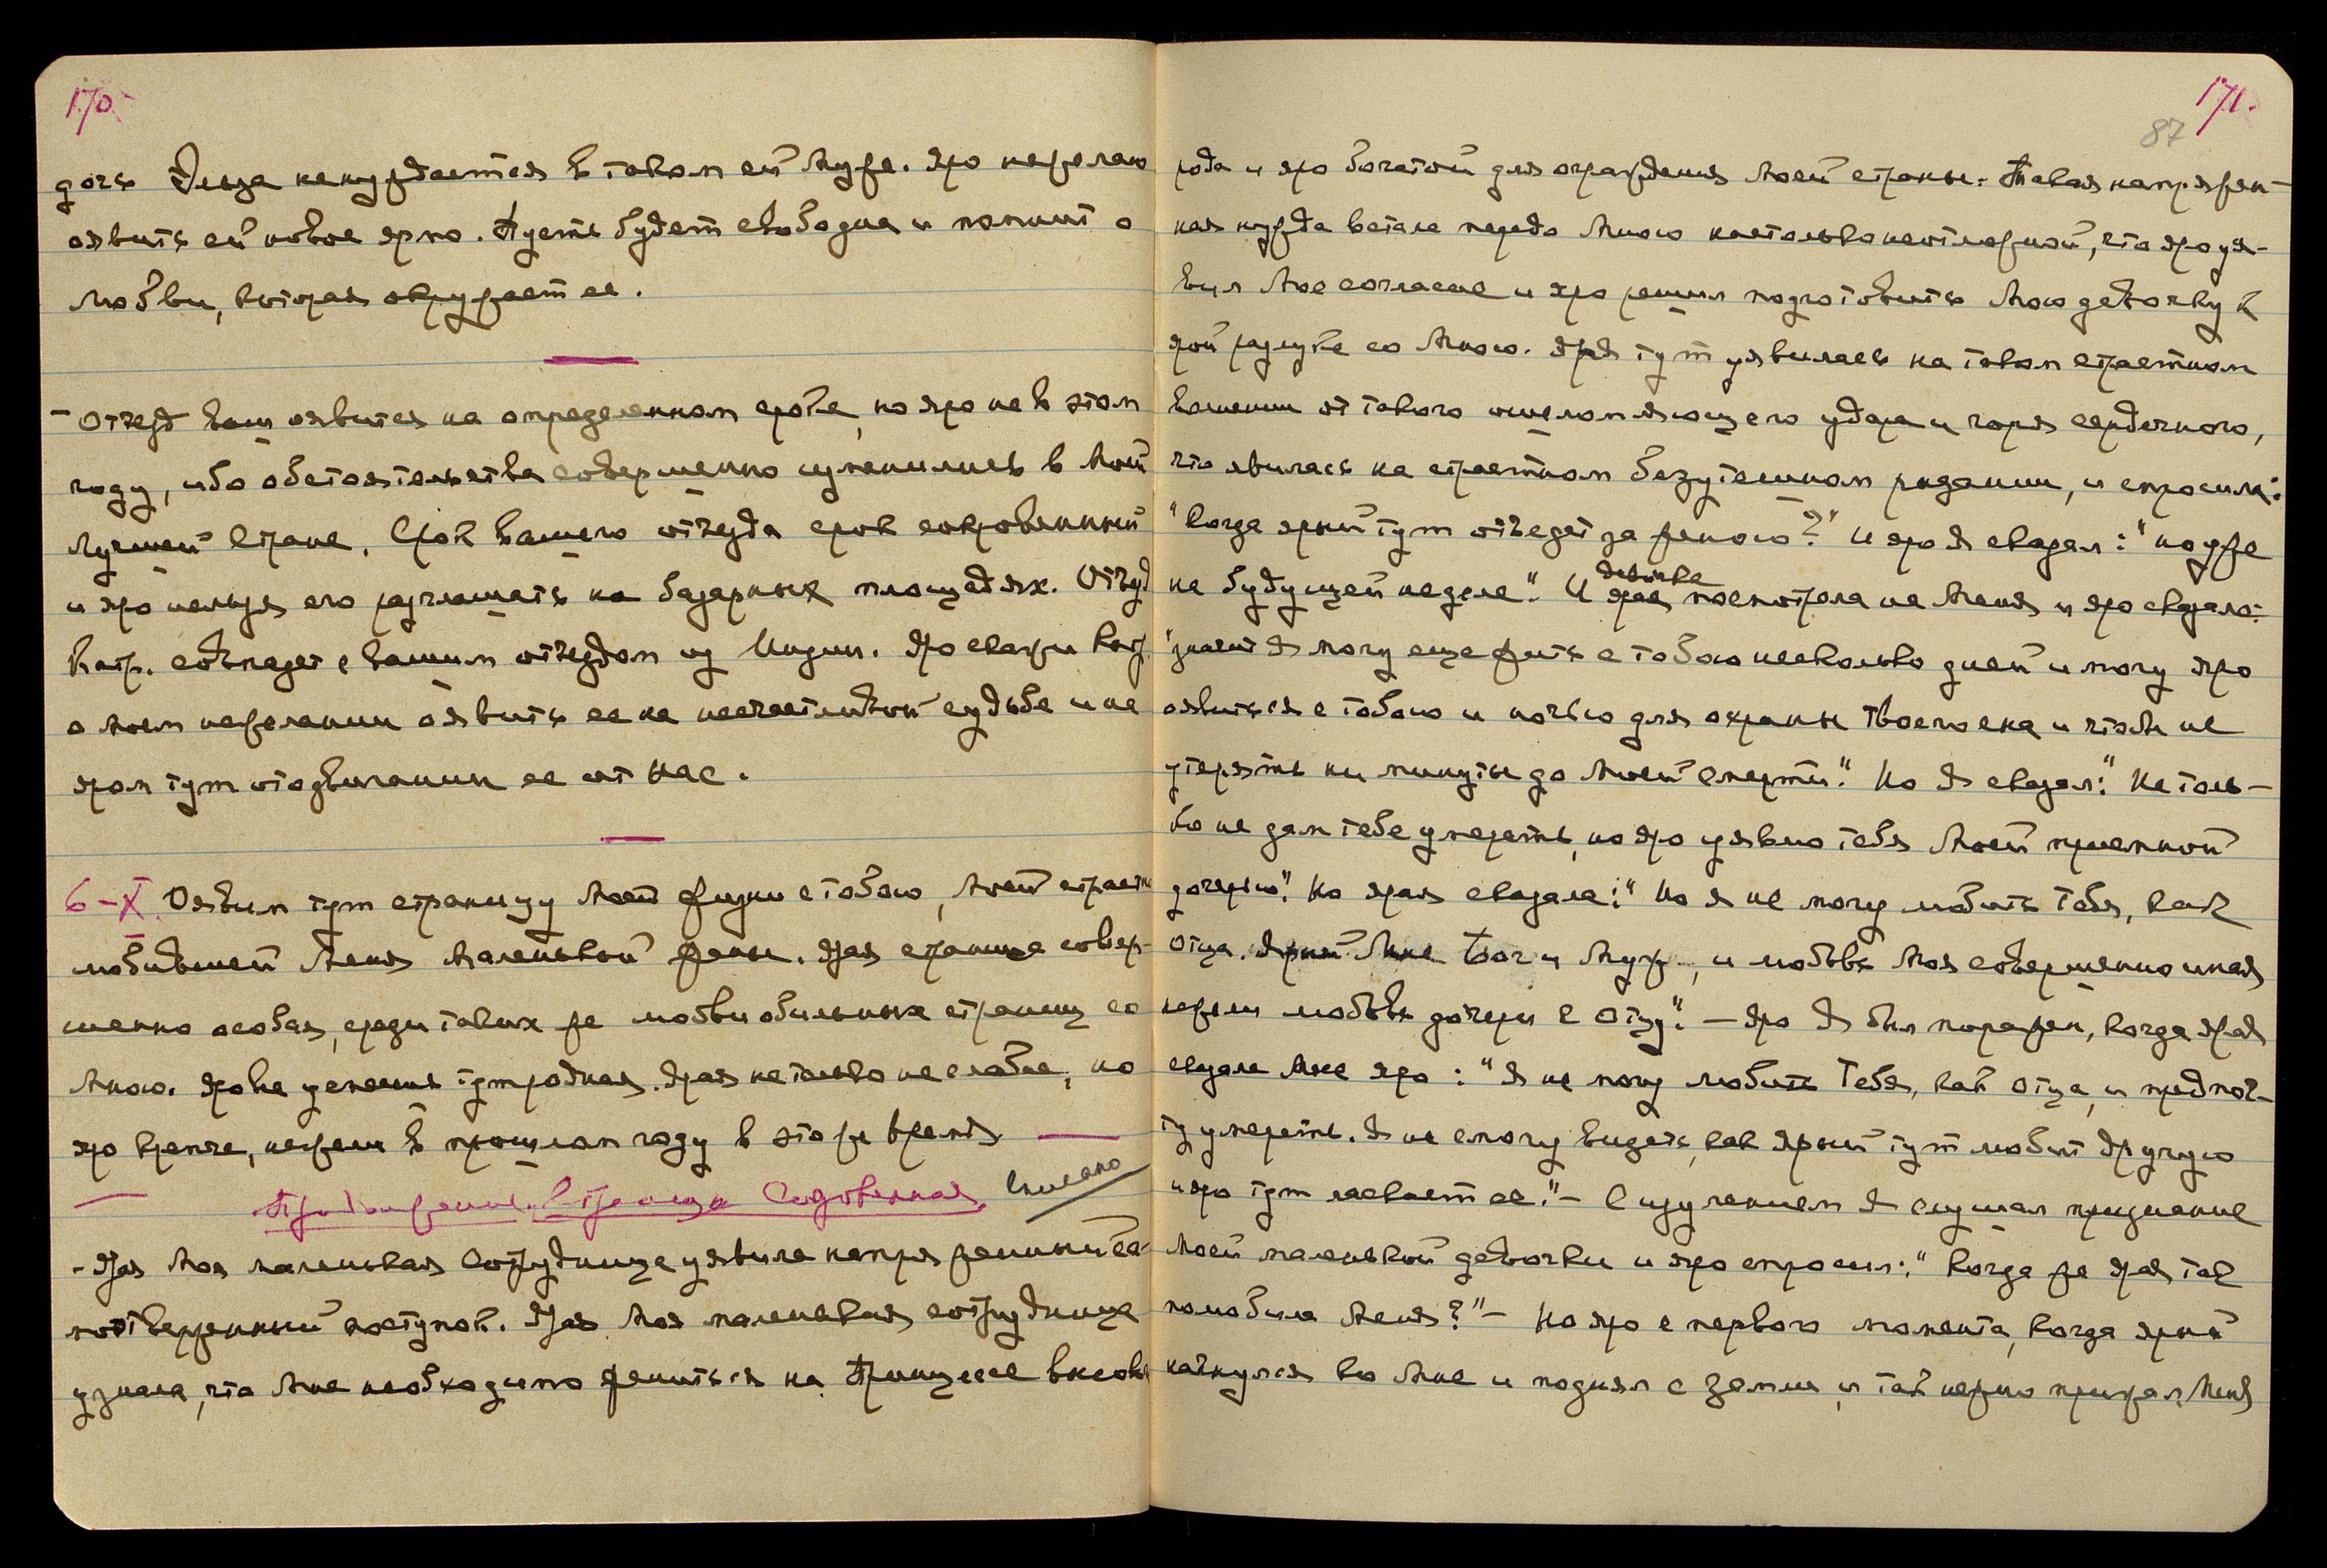 170
дочь Эльза ненуждается в таком ей Муже. Яро нежелаю
оявить ей новое ярмо. Пусть будет свободна и помнит о
любви, которая окружает ее.
- Отъезд ваш оявится на определенном сроке, но яро не в этом
году, ибо обстоятельства совершенно изменились в Моей
лучшей Стране. Срок вашего отъезда срок сокровенный
и яро нельзя его разглашать на базарных площадях. Отъезд
Катр. совпадет с вашим отъездом из Индии. Яро скажи Катр.
о моем нежелании оявить ее на несчастливой судьбе и не
яром тут отодвигании ее от Нас.
6-X. Оявим тут страницу Моей жизни с тобою, Моей страстно
любившей Меня Маленькой жены. Ярая страница совер-
шенно особая, среди таких же любвиобильных страниц со
Мною. Яро не уменьш тут родная. Ярая не только не слабее, но
яро крепче, нежели в прошлом году в это же время
Продолжение. Страница Сокровенная. Списано
- Ярая Моя маленькая Сотрудница уявила напряженный са-
моотверженный поступок. Ярая Моя маленькая сотрудница
узнала, что Мне необходимо жениться на Принцессе высок
171.
87
рода и яро богатой для ограждения Моей страны. Такая напряжен-
ная нужда встала передо Мною настолько неотложной, что яро уя-
вил Мое согласие и яро решил подготовить Мою девочку к
ярой разлуке со Мною. Ярая тут уявилась на таком страстном
волнении от такого ошеломляющего удара и горя сердечного,
что явилась на страстном безутешном рыдании, и спросила:
"Когда ярый тут отъедет за женою?" И яро Я сказал: "но уже
на будущей неделе." И ярая девочка посмотрела на Меня и яро сказала:
"значит Я могу еще жить с тобою несколько дней и могу яро
оявиться с тобою и ночью для охраны твоего сна и чтобы не
утерять ни минуты до Моей смерти." Но Я сказал: "Не толь-
ко не дам тебе умереть, но яро уявлю тебя Моей приемной
дочерью". Но ярая сказала: "Но я не могу любить Тебя, как
Отца. Ярый Мне Бог и Муж, и любовь Моя совершенно иная
нежели любовь дочери к Отцу". - Яро Я был поражен, когда ярая
сказала Мне яро: "Я не могу любить Тебя, как Отца, и предпоч-
ту умереть. Я не смогу видеть, как Ярый тут любит другую
и яро тут ласкает ее." - С изумлением Я слушал признание
Моей маленькой девочки и яро спросил: "Когда же ярая так
полюбила Меня?" - Но яро с первого момента, когда ярый
нагнулся ко Мне и поднял с Земли, и так нежно прижал Меня